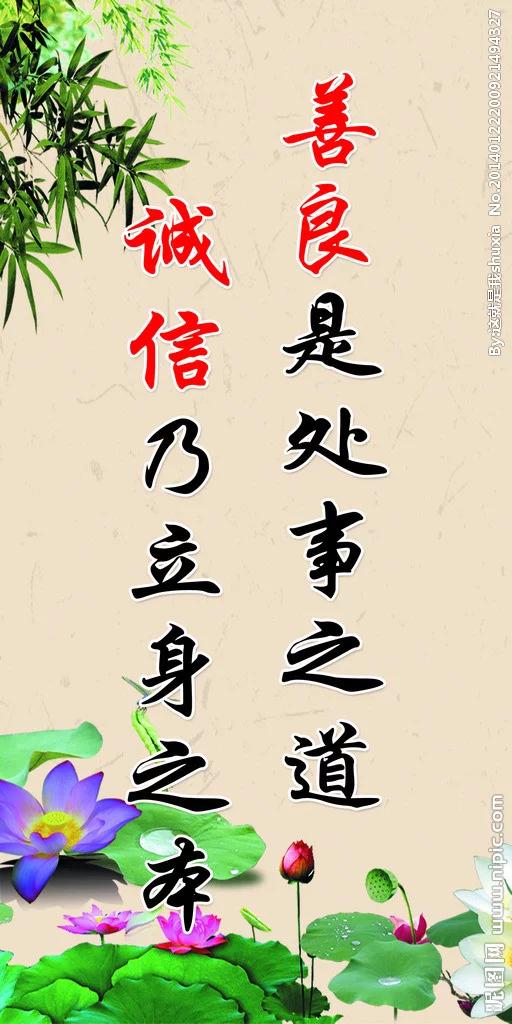 善良是处事之道
诚信乃立身之本
By:这就是我shuxia No.20140122200921494327
昵图网 www.nipic.com